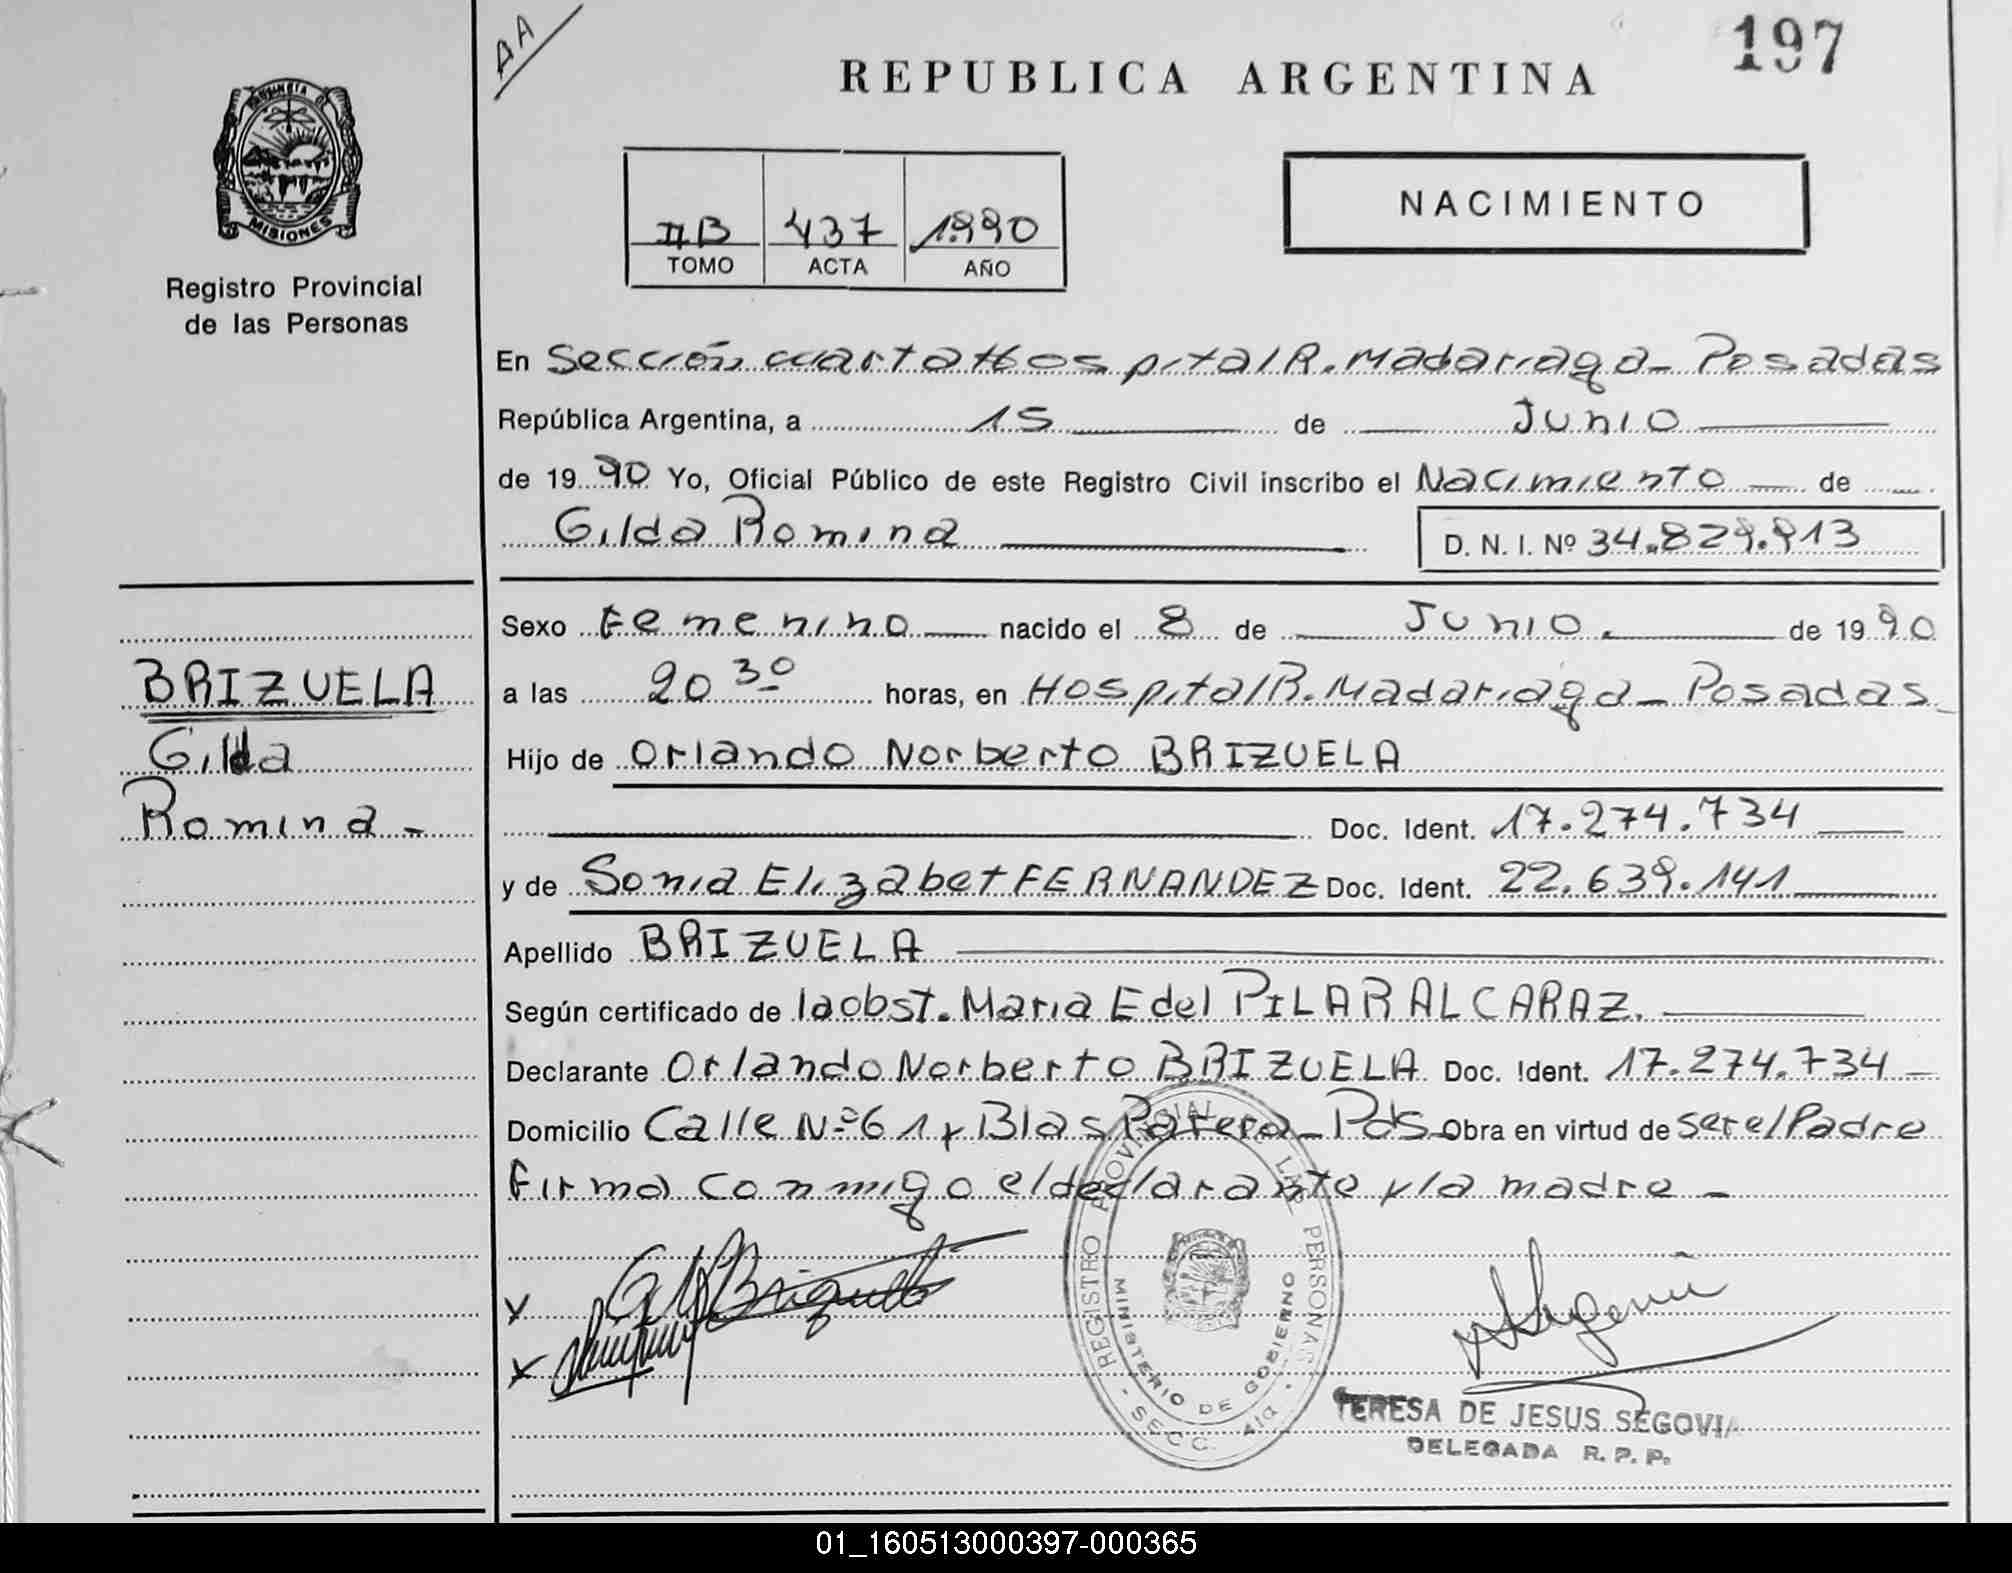 AA
197
REPUBLICA ARGENTINA
PROVINCIA DE
MISIONES
Registro Provincial
de las Personas
IIB 437 1990
TOMO ACTA AÑO
NACIMIENTO
En Sección cuarta Hospital R. Madariaga - Posadas
República Argentina, a 15 de Junio
de 1990 Yo, Oficial Público de este Registro Civil inscribo el Nacimiento de
Gilda Romina D. N. I. Nº 34.829.913
Sexo Femenino nacido el 8 de Junio de 1990
BRIZUELA
Gilda
Romina -
a las 20 30 horas, en Hospital R. Madariaga - Posadas
Hijo de Orlando Norberto BRIZUELA
Doc. Ident. 17.274.734
y de Sonia Elizabet FERNANDEZ Doc. Ident. 22.639.141
Apellido BRIZUELA
Según certificado de la obst. Maria E del PILAR ALCARAZ.
Declarante Orlando Norberto BRIZUELA Doc. Ident. 17.274.734
Domicilio Calle Nº 61 y Blas Parera - Pds Obra en virtud de ser el Padre
Firma conmigo el declarante y la madre -
REGISTRO PROVINCIAL DE LAS PERSONAS
MINISTERIO DE GOBIERNO
- SECC. 4ta -
TERESA DE JESUS SEGOVIA
DELEGADA R. P. P.
01_160513000397-000365